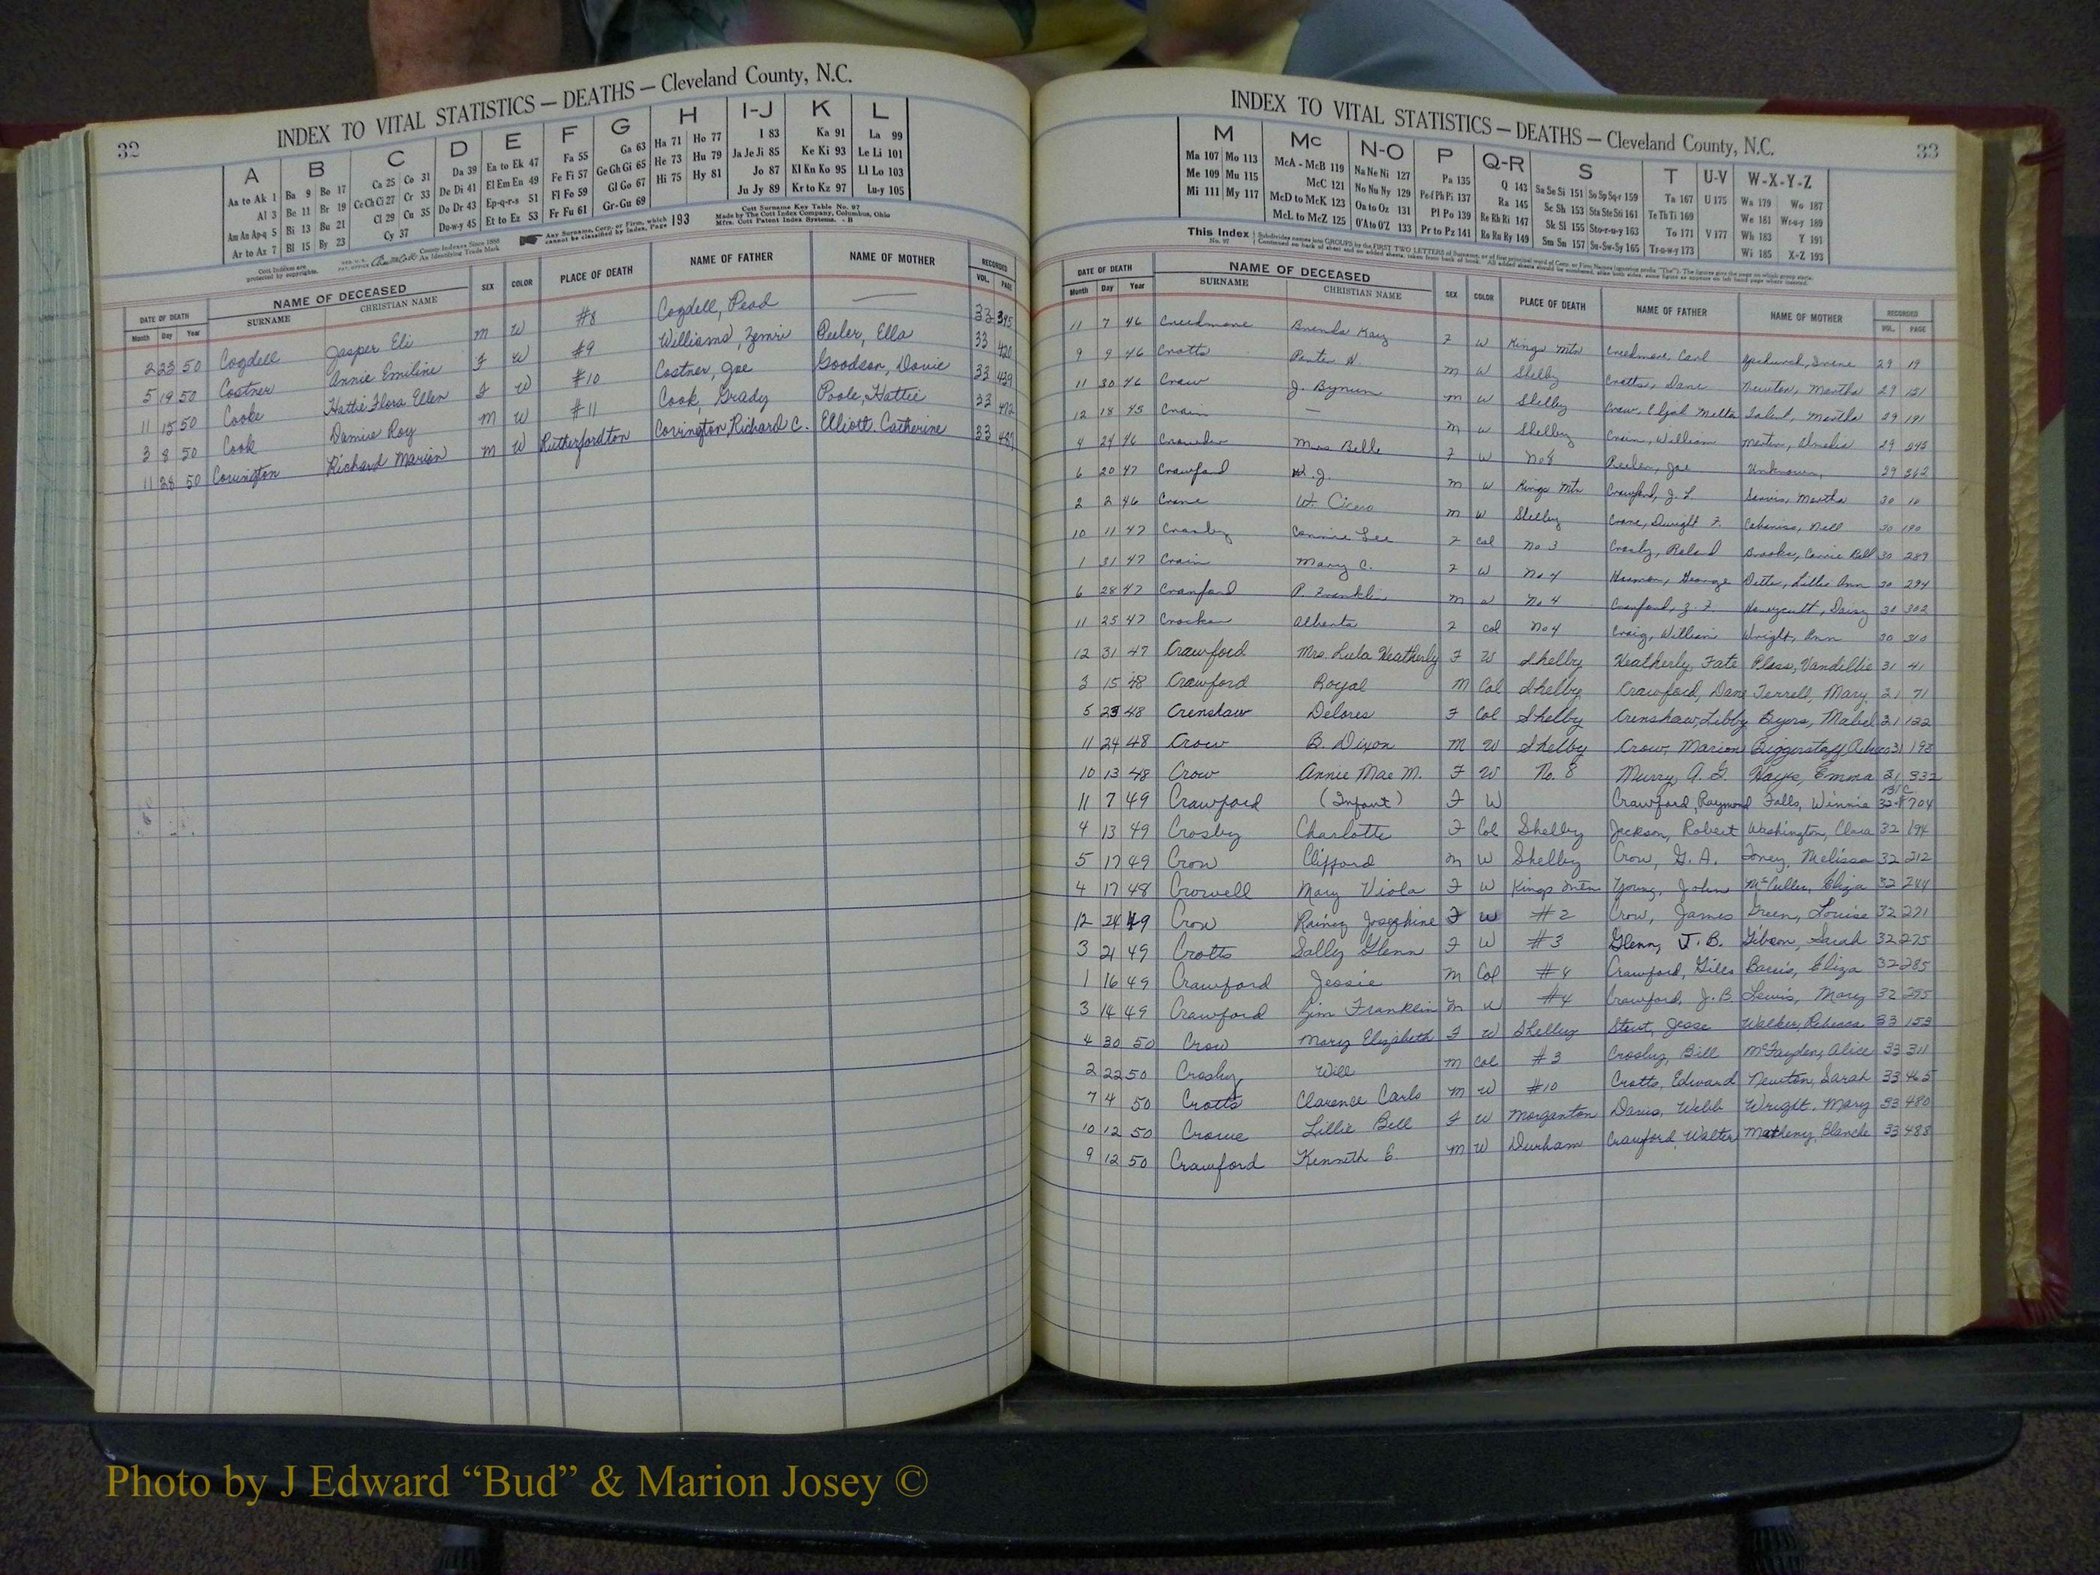 32
INDEX TO VITAL STATISTICS — DEATHS — Cleveland County, N.C.
A B C D E F G H I-J K L
Aa to Ak 1 Ba 9 Bo 17 Ca 25 Co 31 Da 39 Ea to Ek 47 Fa 55 Ga 63 Ha 71 Ho 77 I 83 Ka 91 La 99
Al 3 Be 11 Br 19 Ce Ch Ci 27 Cr 33 De Di 41 El Em En 49 Fe Fi 57 Ge Gh Gi 65 He 73 Hu 79 Ja Je Ji 85 Ke Ki 93 Le Li 101
Am An Ap-q 5 Bi 13 Bu 21 Cl 29 Cu 35 Do Dr 43 Ep-q-r-s 51 Fl Fo 59 Gl Go 67 Hi 75 Hy 81 Jo 87 Kl Kn Ko 95 Ll Lo 103
Ar to Az 7 Bl 15 By 23 Cy 37 Do-w-y 45 Et to Ez 53 Fr Fu 61 Gr-Gu 69 Ju Jy 89 Kr to Kz 97 Lu-y 105
Cott Indexes are protected by copyrights.
County Indexes Since 1888
An Identifying Trade Mark
Any Surname, Corp. or Firm, which cannot be classified by Index, Page 193
Cott Surname Key Table No. 97
Made by The Cott Index Company, Columbus, Ohio
Mfrs. Cott Patent Index Systems. - B
DATE OF DEATH NAME OF DECEASED SEX COLOR PLACE OF DEATH NAME OF FATHER NAME OF MOTHER RECORDED
Month Day Year SURNAME CHRISTIAN NAME VOL. PAGE
2 23 50 Cogdell Jasper Eli M W #8 Cogdell, Pead — 33 395
5 19 50 Costner Annie Emiline F W #9 Williams, Zemri Peeler, Ella 33 420
11 15 50 Cooke Hattie Flora Ellen F W #10 Costner, Joe Goodson, Dovie 33 439
3 8 50 Cook Damie Roy M W #11 Cook, Grady Poole, Hattie 33 472
11 28 50 Covington Richard Marion M W Rutherfordton Covington, Richard C. Elliott, Catherine 33 487
33
INDEX TO VITAL STATISTICS — DEATHS — Cleveland County, N.C.
M Mc N-O P Q-R S T U-V W-X-Y-Z
Ma 107 Mo 113 McA - McB 119 Na Ne Ni 127 Pa 135 Q 143 Sa Se Si 151 So Sp Sq-r 159 Ta 167 U 175 Wa 179 Wo 187
Me 109 Mu 115 McC 121 No Nu Ny 129 Pe f Ph Pi 137 Ra 145 Sc Sh 153 Sta Ste Sti 161 Te Th Ti 169 We 181 Wr-u-y 189
Mi 111 My 117 McD to McK 123 Oa to Oz 131 Pl Po 139 Re Rh Ri 147 Sk Sl 155 Sto-r-u-y 163 To 171 V 177 Wh 183 Y 191
McL to McZ 125 O'A to O'Z 133 Pr to Pz 141 Ro Ru Ry 149 Sm Sn 157 Su-Sw-Sy 165 Tr-u-w-y 173 Wi 185 X-Z 193
This Index No. 97
DATE OF DEATH NAME OF DECEASED SEX COLOR PLACE OF DEATH NAME OF FATHER NAME OF MOTHER RECORDED
Month Day Year SURNAME CHRISTIAN NAME VOL. PAGE
11 7 46 Creedmore Brenda Kay F W Kings Mtn Creedmore, Carl Irene 29 19
9 9 46 Crotts M W Shelby Crotts, Dane Newton, Martha 29 151
11 30 46 Crow J. Bynum M W Shelby Crow, Elijah Melton Martha 29 191
12 18 45 Crain — M W Shelby Crain, William Martin, 29 343
4 24 46 Crowder Mrs Belle F W No 8 Peeler, Joe Unknown, 29 362
6 20 47 Crawford W. J. M W Kings Mtn Crawford, J. L Martha 30 10
2 2 46 Crane W. Cicero M W Shelby Crane, Dwight F. Cabaniss, Nell 30 190
10 11 47 Crosby Connie Lee F Col No 3 Crosby, Roland Brooks, Carrie Bell 30 289
1 31 47 Crain Mary C. F W No 4 Harmon, George Lillie Ann 30 294
6 28 47 Cranford P. Franklin M W No 4 Cranford, Z. F. Honeycutt, Daisy 30 302
11 25 47 Crocker Alberta F Col No 4 Craig, William Wright, Ann 30 310
12 31 47 Crawford Mrs. Lula Weatherly F W Shelby Weatherly, Fate Pless, Vandillie 31 41
3 15 48 Crawford Royal M Col Shelby Crawford, Dane Terrell, Mary 31 71
5 23 48 Crenshaw Delores F Col Shelby Crenshaw, Libby Byers, Mabel 31 122
11 24 48 Crow B. Dixon M W Shelby Crow, Marion Biggerstaff 31 193
10 13 48 Crow Annie Mae M. F W No. 8 Murry, A. G. Hayes, Emma 31 332
11 7 49 Crawford (Infant) F W Crawford, Raymond Falls, Winnie 32 704
4 13 49 Crosby Charlotte F Col Shelby Jackson, Robert Washington, Clara 32 194
5 17 49 Crow Clifford M W Shelby Crow, G. A. Toney, Melissa 32 212
4 17 48 Crowell Mary Viola F W Kings Mtn Young, John Eliza 32 244
12 24 49 Crow Rainey Josephine F W #2 Crow, James Green, Louise 32 271
3 21 49 Crotts Sally Glenn F W #3 Glenn, J. B. Gibson, Sarah 32 275
1 16 49 Crawford Jessie M Col #4 Crawford, Giles Eliza 32 285
3 14 49 Crawford Jim Franklin M W #4 Crawford, J. B. Lewis, Mary 32 295
4 30 50 Crow Mary Elizabeth F W Shelby Stout, Jesse Walker, Rebecca 33 153
2 22 50 Crosby Will M Col #3 Crosby, Bill McFayden, Alice 33 311
7 4 50 Crotts Clarence Carlo M W #10 Crotts, Edward Newton, Sarah 33 465
10 12 50 Crowe Lillie Bell F W Morganton Davis, Webb Wright, Mary 33 480
9 12 50 Crawford Kenneth E. M W Durham Crawford, Walter Matheny, Blanche 33 488
Photo by J Edward “Bud” & Marion Josey ©